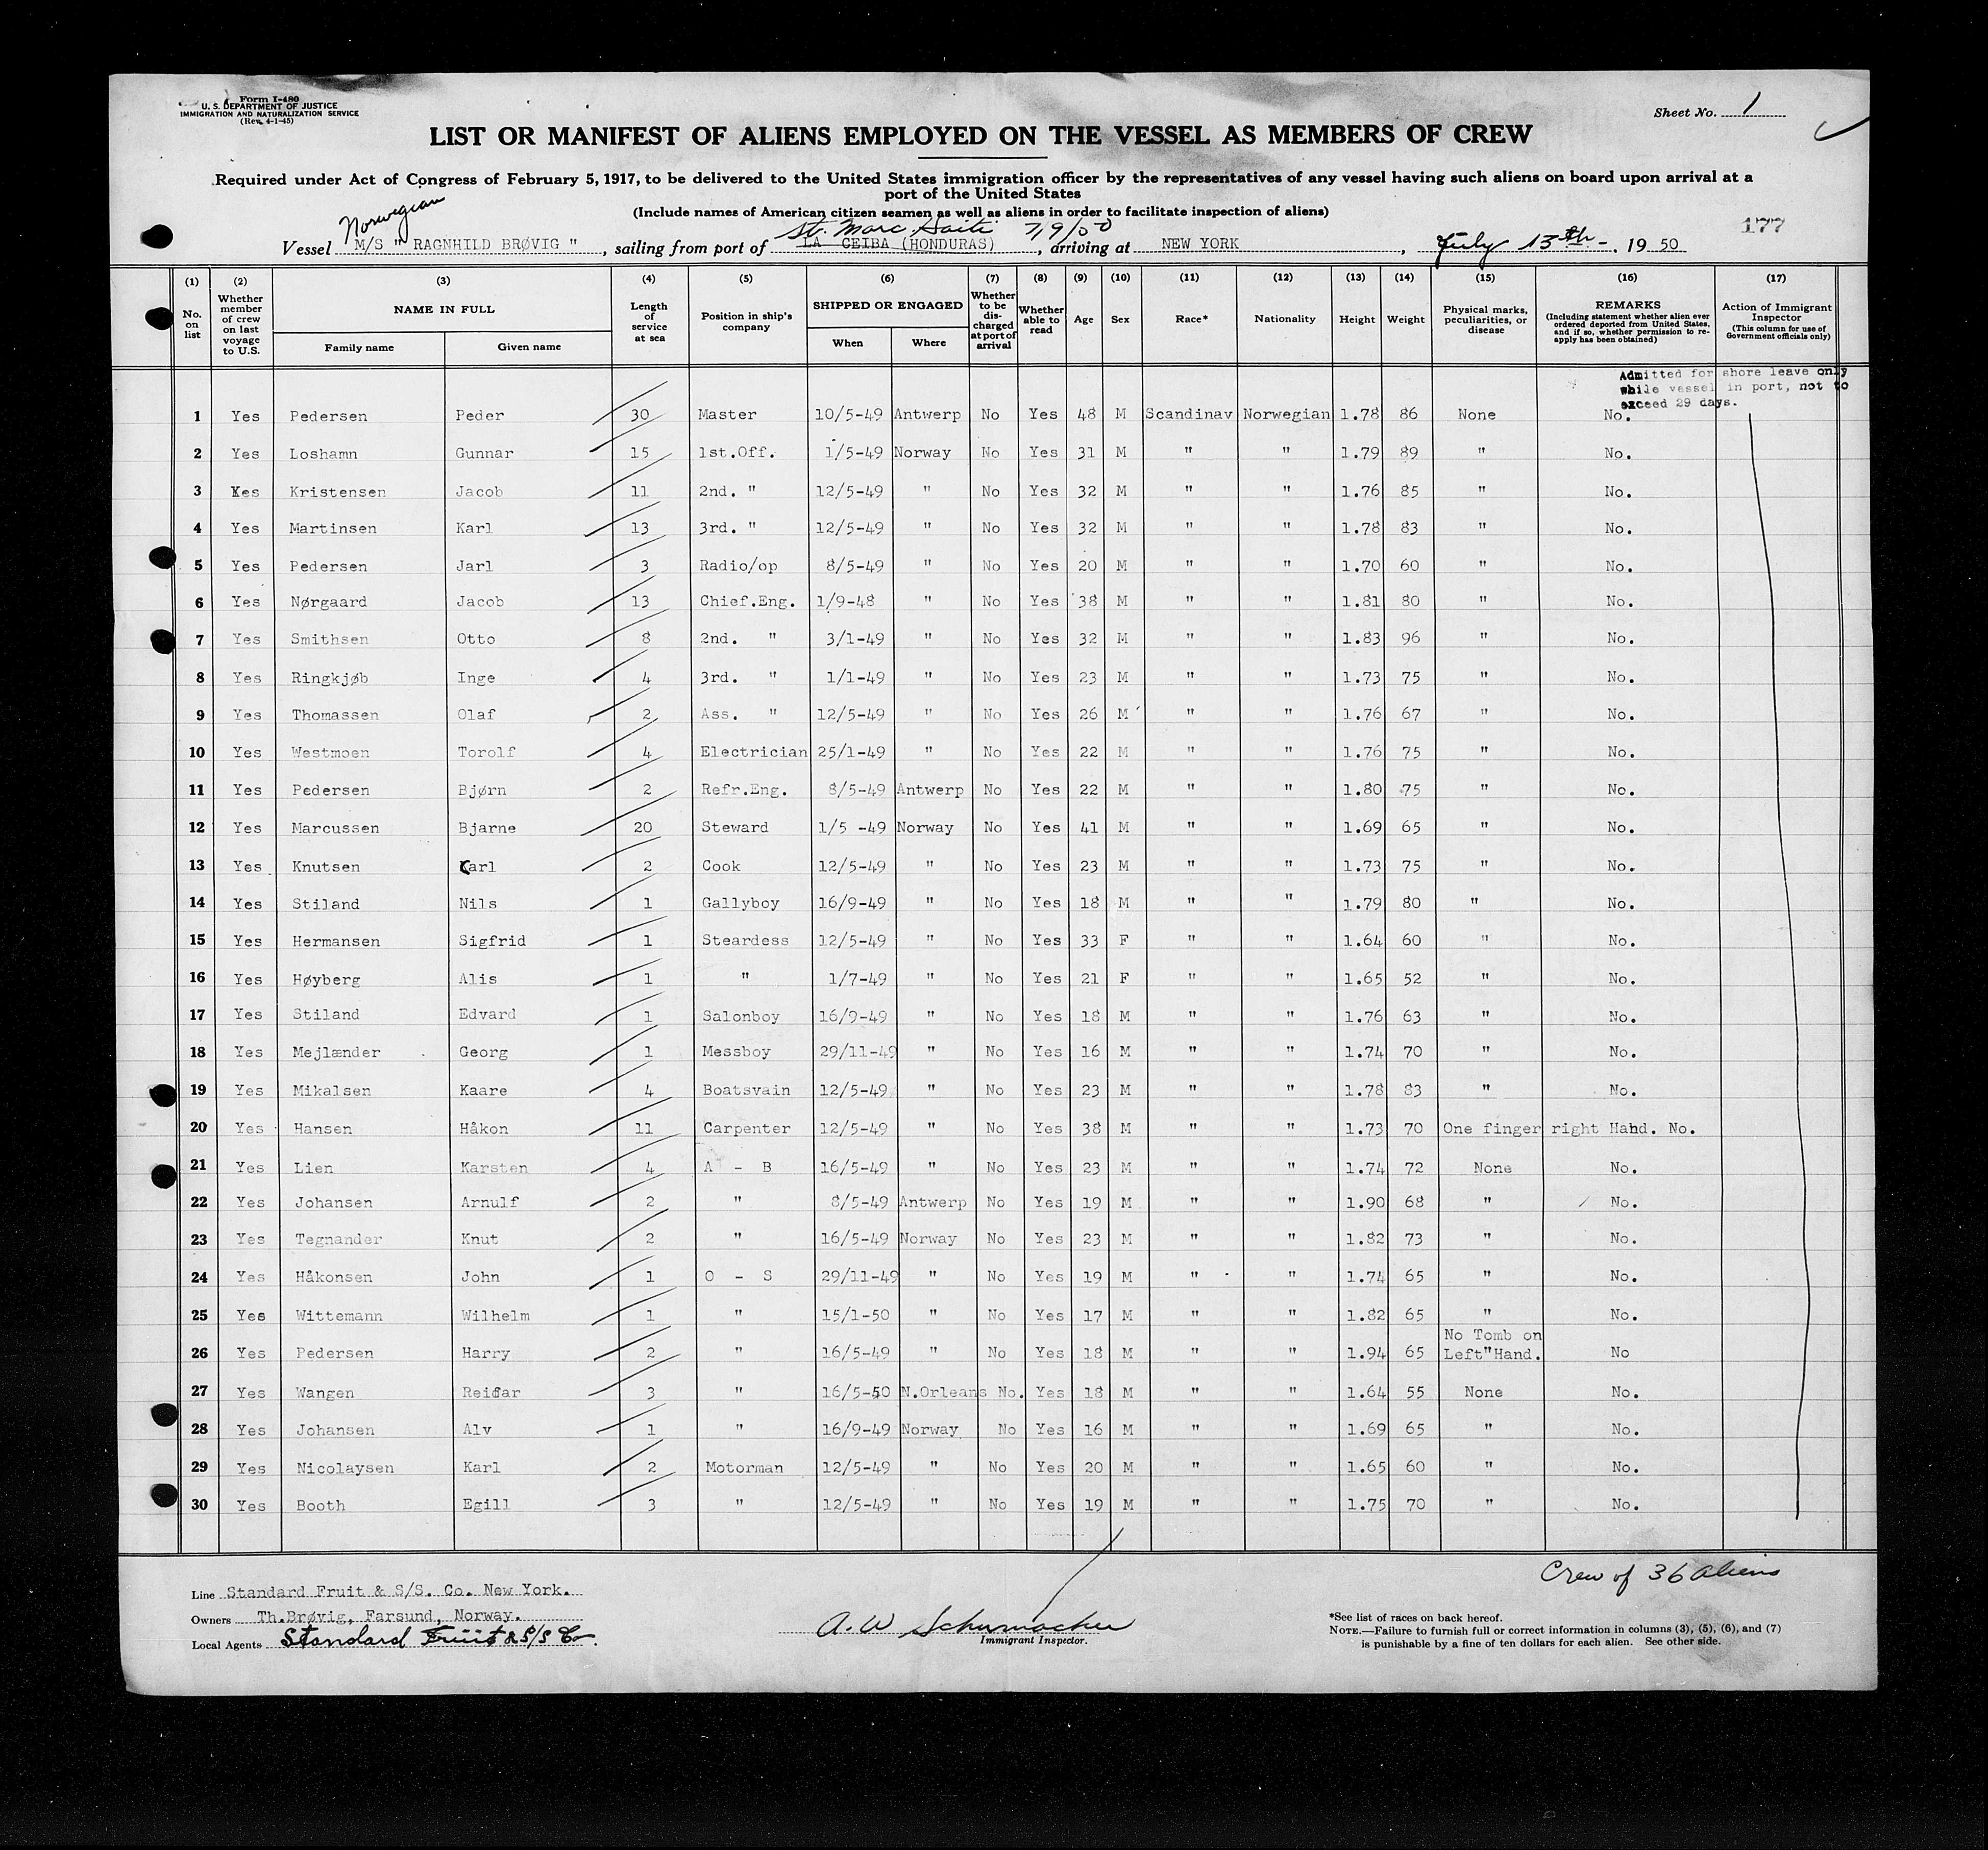 Form I-480
U. S. DEPARTMENT OF JUSTICE
IMMIGRATION AND NATURALIZATION SERVICE
(Rev. 4-1-45)
Sheet No. 1
LIST OR MANIFEST OF ALIENS EMPLOYED ON THE VESSEL AS MEMBERS OF CREW
Required under Act of Congress of February 5, 1917, to be delivered to the United States immigration officer by the representatives of any vessel having such aliens on board upon arrival at a
port of the United States
(Include names of American citizen seamen as well as aliens in order to facilitate inspection of aliens)
Norwegian
St. Marc. Haiti 7/9/50
177
Vessel M/S " RAGNHILD BRØVIG ", sailing from port of LA CEIBA (HONDURAS), arriving at NEW YORK, July 13th, 1950
(1) No. on list (2) Whether member of crew on last voyage to U.S. (3) NAME IN FULL Family name Given name (4) Length of service at sea (5) Position in ship's company (6) SHIPPED OR ENGAGED When Where (7) Whether to be discharged at port of arrival (8) Whether able to read (9) Age (10) Sex (11) Race* (12) Nationality (13) Height (14) Weight (15) Physical marks, peculiarities, or disease (16) REMARKS (Including statement whether alien ever ordered deported from United States, and if so, whether permission to re-apply has been obtained) (17) Action of Immigrant Inspector (This column for use of Government officials only)
Admitted for shore leave only
while vessel in port, not to
exceed 29 days.
1 Yes Pedersen Peder 30 Master 10/5-49 Antwerp No Yes 48 M Scandinav Norwegian 1.78 86 None No.
2 Yes Loshamn Gunnar 15 1st.Off. 1/5-49 Norway No Yes 31 M " " 1.79 89 " No.
3 Yes Kristensen Jacob 11 2nd. " 12/5-49 " No Yes 32 M " " 1.76 85 " No.
4 Yes Martinsen Karl 13 3rd. " 12/5-49 " No Yes 32 M " " 1.78 83 " No.
5 Yes Pedersen Jarl 3 Radio/op 8/5-49 " No Yes 20 M " " 1.70 60 " No.
6 Yes Nørgaard Jacob 13 Chief.Eng. 1/9-48 " No Yes 38 M " " 1.81 80 " No.
7 Yes Smithsen Otto 8 2nd. " 3/1-49 " No Yes 32 M " " 1.83 96 " No.
8 Yes Ringkjøb Inge 4 3rd. " 1/1-49 " No Yes 23 M " " 1.73 75 " No.
9 Yes Thomassen Olaf 2 Ass. " 12/5-49 " No Yes 26 M " " 1.76 67 " No.
10 Yes Westmoen Torolf 4 Electrician 25/1-49 " No Yes 22 M " " 1.76 75 " No.
11 Yes Pedersen Bjørn 2 Refr.Eng. 8/5-49 Antwerp No Yes 22 M " " 1.80 75 " No.
12 Yes Marcussen Bjarne 20 Steward 1/5 -49 Norway No Yes 41 M " " 1.69 65 " No.
13 Yes Knutsen Carl 2 Cook 12/5-49 " No Yes 23 M " " 1.73 75 " No.
14 Yes Stiland Nils 1 Gallyboy 16/9-49 " No Yes 18 M " " 1.79 80 " No.
15 Yes Hermansen Sigfrid 1 Steardess 12/5-49 " No Yes 33 F " " 1.64 60 " No.
16 Yes Høyberg Alis 1 " 1/7-49 " No Yes 21 F " " 1.65 52 " No.
17 Yes Stiland Edvard 1 Salonboy 16/9-49 " No Yes 18 M " " 1.76 63 " No.
18 Yes Mejlænder Georg 1 Messboy 29/11-49 " No Yes 16 M " " 1.74 70 " No.
19 Yes Mikalsen Kaare 4 Boatsvain 12/5-49 " No Yes 23 M " " 1.78 83 " No.
20 Yes Hansen Håkon 11 Carpenter 12/5-49 " No Yes 38 M " " 1.73 70 One finger right Hand. No.
21 Yes Lien Karsten 4 A - B 16/5-49 " No Yes 23 M " " 1.74 72 None No.
22 Yes Johansen Arnulf 2 " 8/5-49 Antwerp No Yes 19 M " " 1.90 68 " No.
23 Yes Tegnander Knut 2 " 16/5-49 Norway No Yes 23 M " " 1.82 73 " No.
24 Yes Håkonsen John 1 O - S 29/11-49 " No Yes 19 M " " 1.74 65 " No.
25 Yes Wittemann Wilhelm 1 " 15/1-50 " No Yes 17 M " " 1.82 65 " No.
26 Yes Pedersen Harry 2 " 16/5-49 " No Yes 18 M " " 1.94 65 No Tomb on Left"Hand. No
27 Yes Wangen Reidar 3 " 16/5-50 N.Orleans No. Yes 18 M " " 1.64 55 None No.
28 Yes Johansen Alv 1 " 16/9-49 Norway No Yes 16 M " " 1.69 65 " No.
29 Yes Nicolaysen Karl 2 Motorman 12/5-49 " No Yes 20 M " " 1.65 60 " No.
30 Yes Booth Egill 3 " 12/5-49 " No Yes 19 M " " 1.75 70 " No.
Crew of 36 aliens
Line Standard Fruit & S/S. Co. New York.
Owners Th.Brøvig, Farsund, Norway.
Local Agents Standard Fruit & S/S Co.
A. W Schumacker
Immigrant Inspector.
*See list of races on back hereof.
NOTE.—Failure to furnish full or correct information in columns (3), (5), (6), and (7)
is punishable by a fine of ten dollars for each alien. See other side.